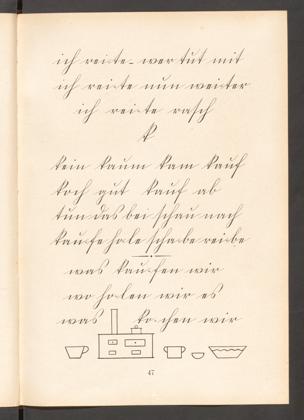 ich rei-te- wer tut mit
ich rei-te nun wei-ter
ich rei-te rasch
k
kein kaum kam kauf
koch gut kauf ab
tun das bei schau nach
kau-fe ho-le scha-be rei-be
was kau-fen wir
wo ho-len wir es
was ko-chen wir
47